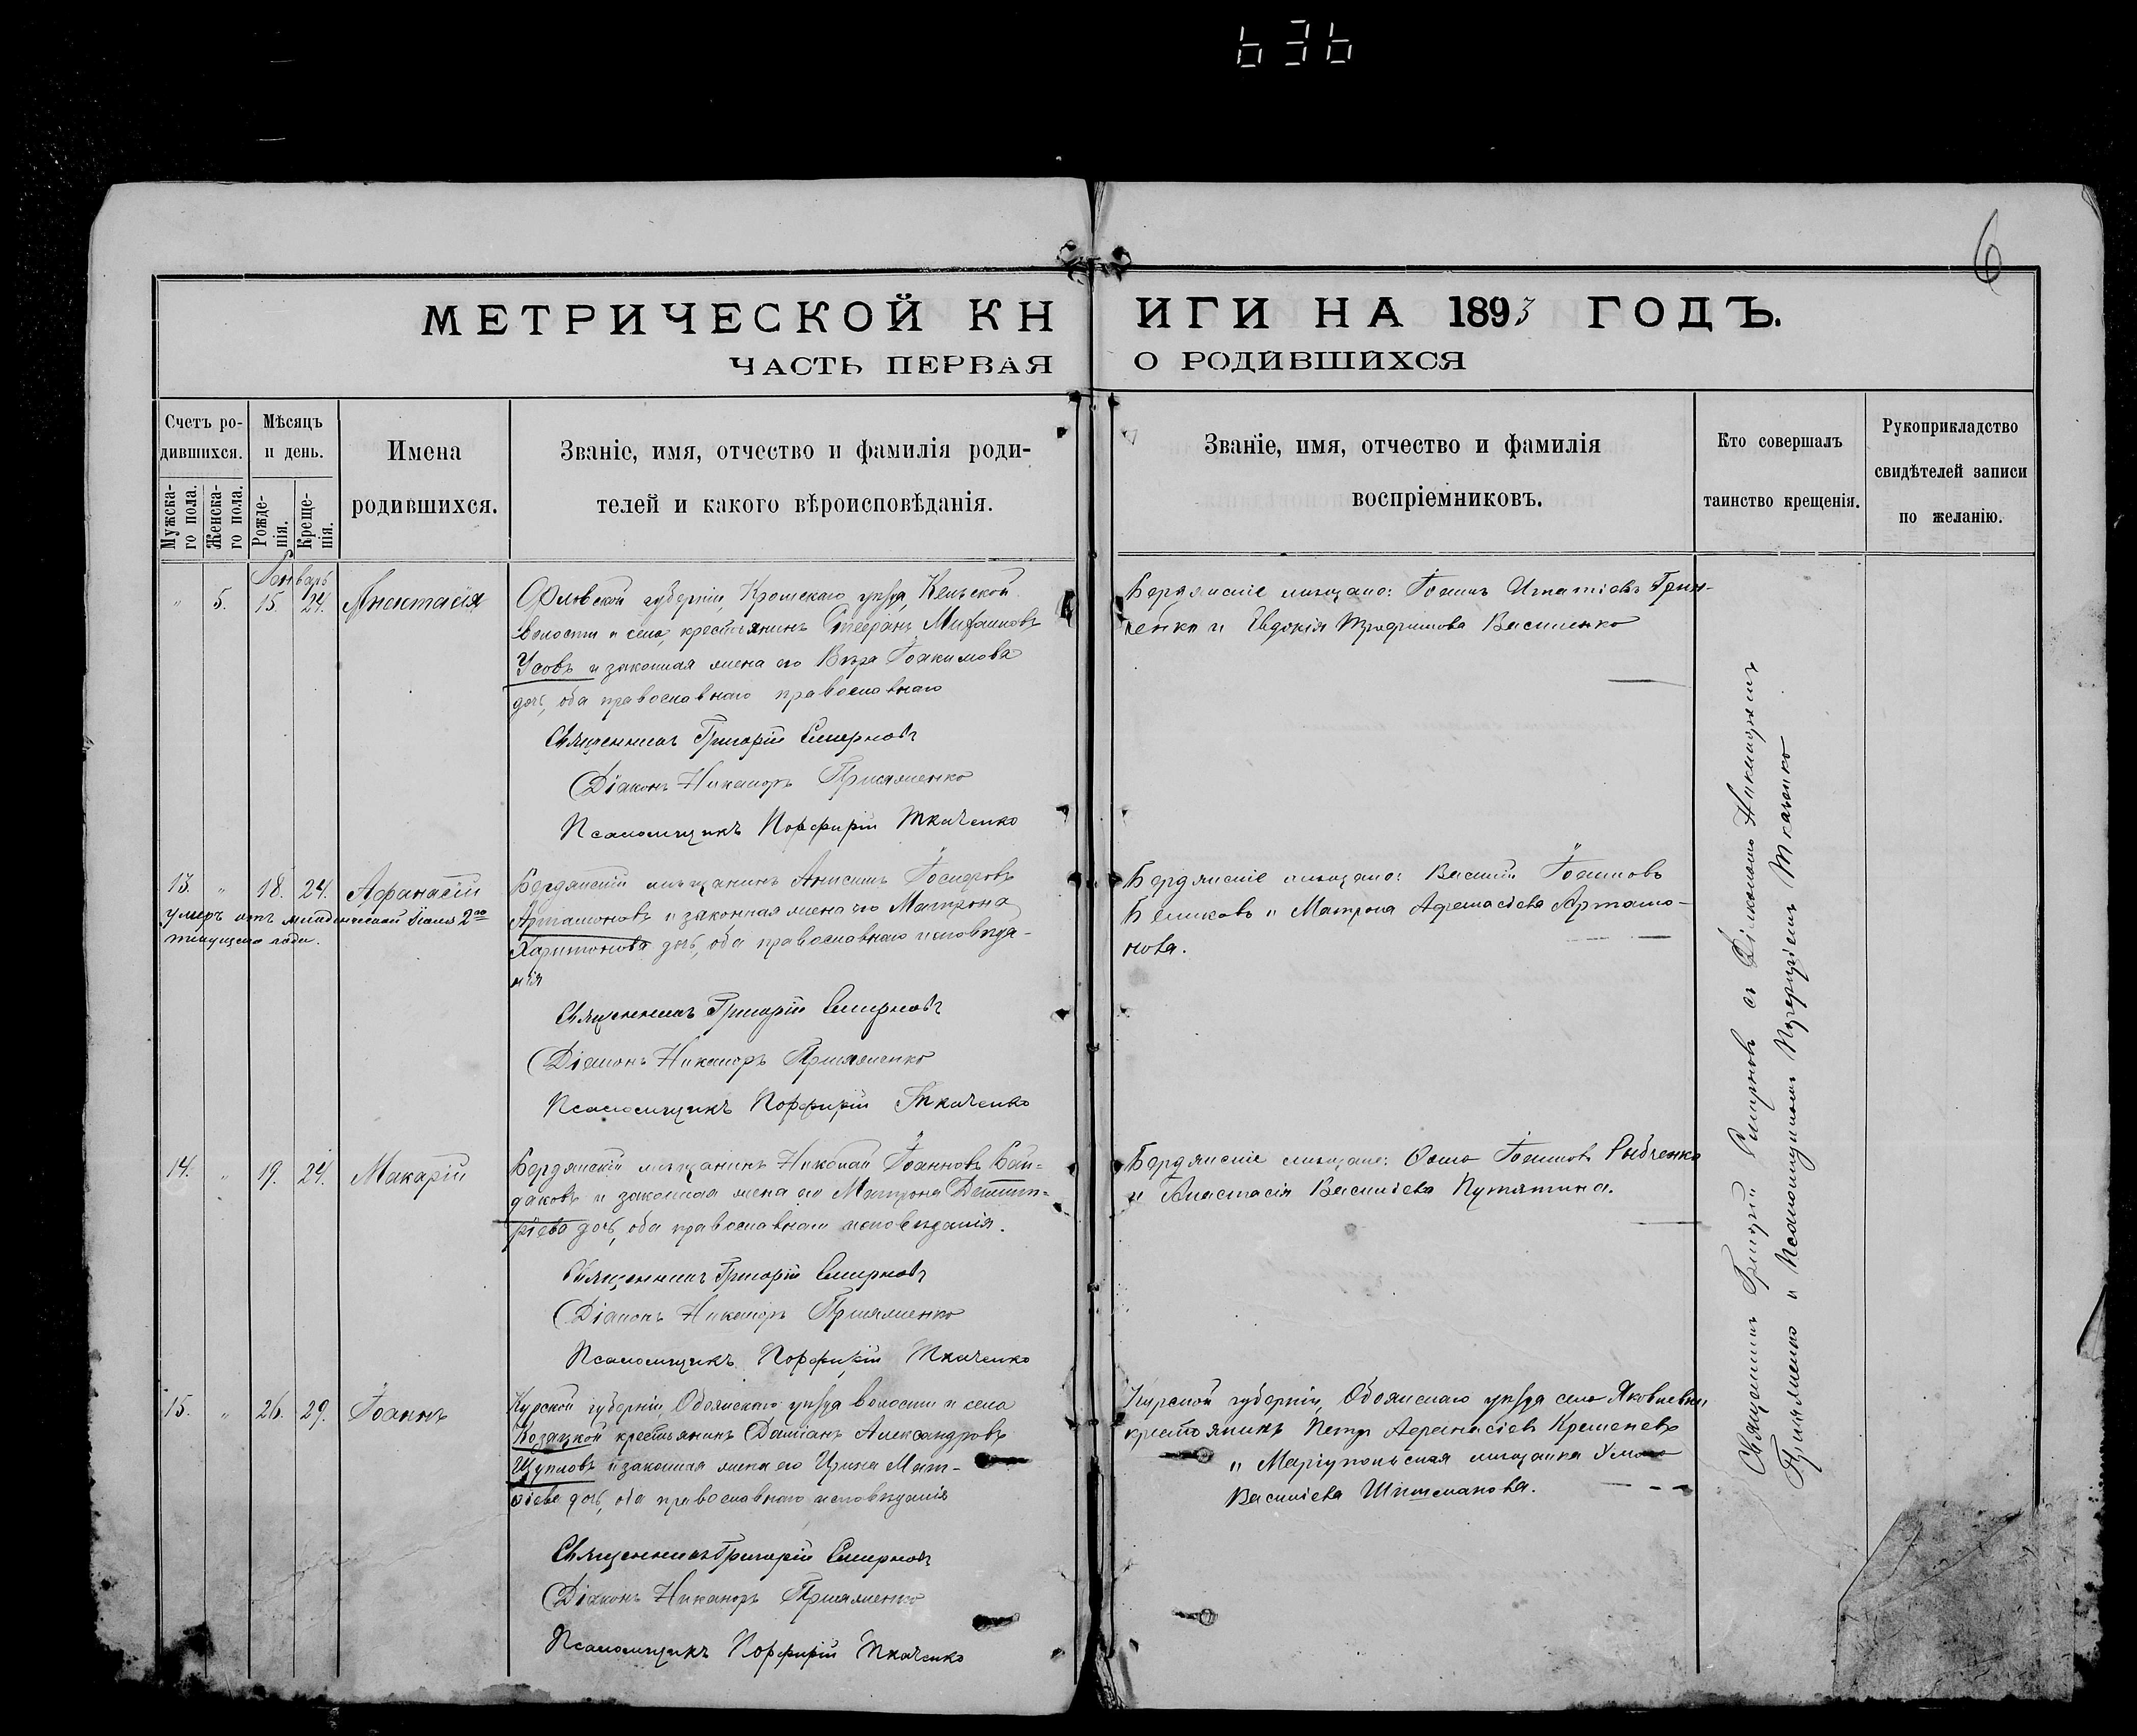 636
6
МЕТРИЧЕСКОЙ КНИГИ НА 1893 ГОДЪ.
ЧАСТЬ ПЕРВАЯ О РОДИВШИХСЯ
Счетъ ро-
дившихся.
Мужска-
го пола.
Женска-
го пола.
Мѣсяцъ
и день.
Рожде-
нія.
Креще-
нія.
Имена
родившихся.
Званіе, имя, отчество и фамилія роди-
телей и какого вѣроисповѣданія.
Званіе, имя, отчество и фамилія
воспріемниковъ.
Кто совершалъ
таинство крещенія.
Рукоприкладство
свидѣтелей записи
по желанію.
Январь
" 5. 15. 24. Анастасія
Орловской губерніи, Кромскаго уѣзда,
волости и села, крестьянинъ Стефанъ Михаиловъ
Усовъ и законная жена его Вѣра Іоакимова
дочь, оба православнаго православнаго
Священникъ Григорій Смирновъ
Діаконъ Никаноръ Присяженко
Псаломщикъ Порфирій Ткаченко
Бердянскіе мѣщане: Іоаннъ Игнатіевъ Грин-
ченко и Евдокія Трифонова Василенко
13. " 18. 24. Афанасій
умеръ отъ младенческой Іюня 2го
текущаго года.
Бердянскій мѣщанинъ Анисимъ Іосифовъ
Артамоновъ и законная жена его Матрона
Харитонова дочь, оба православнаго исповѣда-
нія
Священникъ Григорій Смирновъ
Діаконъ Никаноръ Присяженко
Псаломщикъ Порфирій Ткаченко
Бердянскіе мѣщане: Василій Іоанновъ
Бѣликовъ и Матрона Афанасіева Артамо-
нова.
14. " 19. 24. Макарій
Бердянскій мѣщанинъ Николай Іоанновъ Бай-
даковъ и законная жена его Матрона Димит-
ріева дочь, оба православнаго исповѣданія.
Священникъ Григорій Смирновъ
Діаконъ Никаноръ Присяженко
Псаломщикъ Порфирій Ткаченко
Бердянскіе мѣщане: Ѳома Іоанновъ Рыбченко
и Анастасія Василіева Путятина.
15. " 26. 29. Іоаннъ
Курской губерніи, Обоянскаго уѣзда волости и села
Козацкой крестьянинъ Даміанъ Александровъ
Щупловъ и законная жена его Ирина Мат-
ѳіева дочь, оба православнаго исповѣданія
Священникъ Григорій Смирновъ
Діаконъ Никаноръ Присяженко
Псаломщикъ Порфирій Ткаченко
Курской губерніи, Обоянскаго уѣзда села Яковлевки
крестьянинъ Петръ Афанасіевъ Кременевъ
и Маріупольская мѣщанка
Василіева Шишманова.
Священникъ Григорій Смирновъ съ Діакономъ Никаноромъ
Присяженко и Псаломщикомъ Порфиріемъ Ткаченко